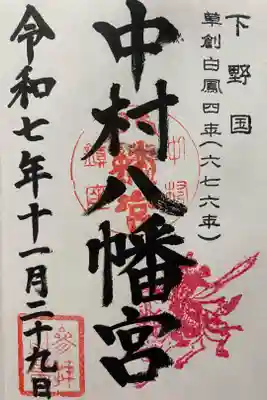 下野国
草創白鳳四年(六七六年)
中村八幡宮
令和七年十一月二十九日
参拝